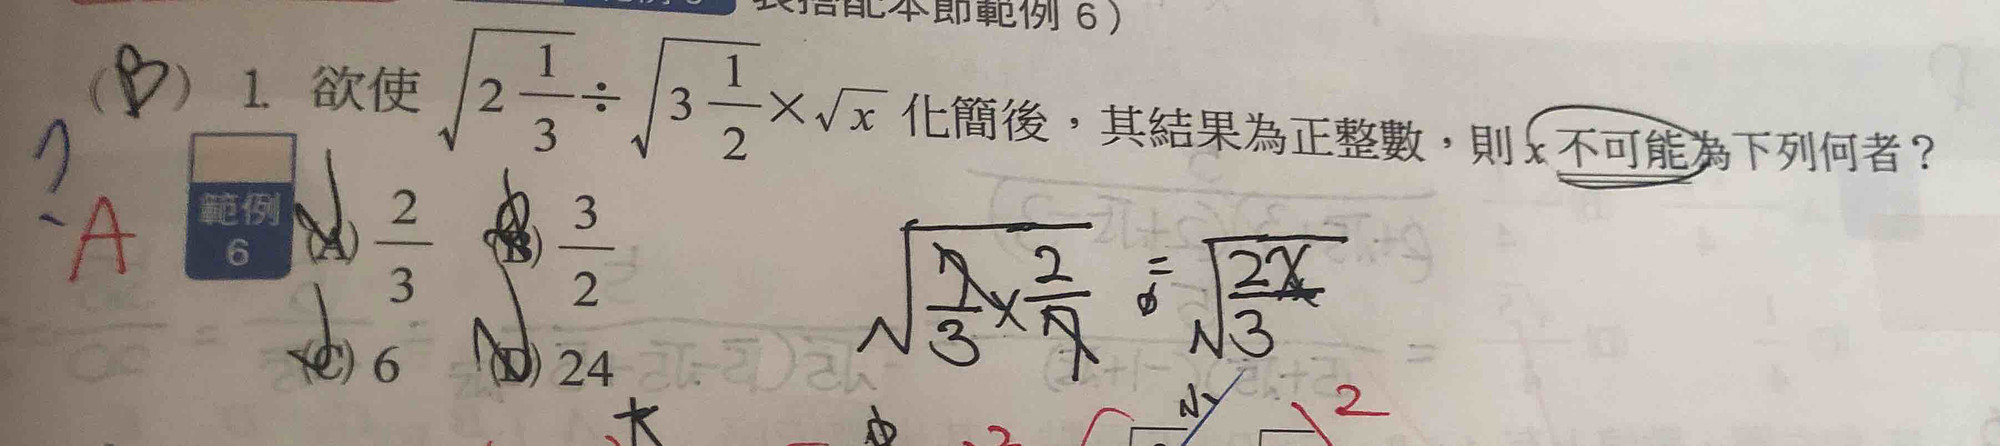 表搭配本節範例 6）
(B) 1. 欲使 √(2 1/3) ÷ √(3 1/2) × √x 化簡後，其結果為正整數，則 x 不可能為下列何者？
? A
範例 6
(A) 2/3 (B) 3/2
(C) 6 (D) 24
√(7/3 × 2/7) = √(2x/3)
2